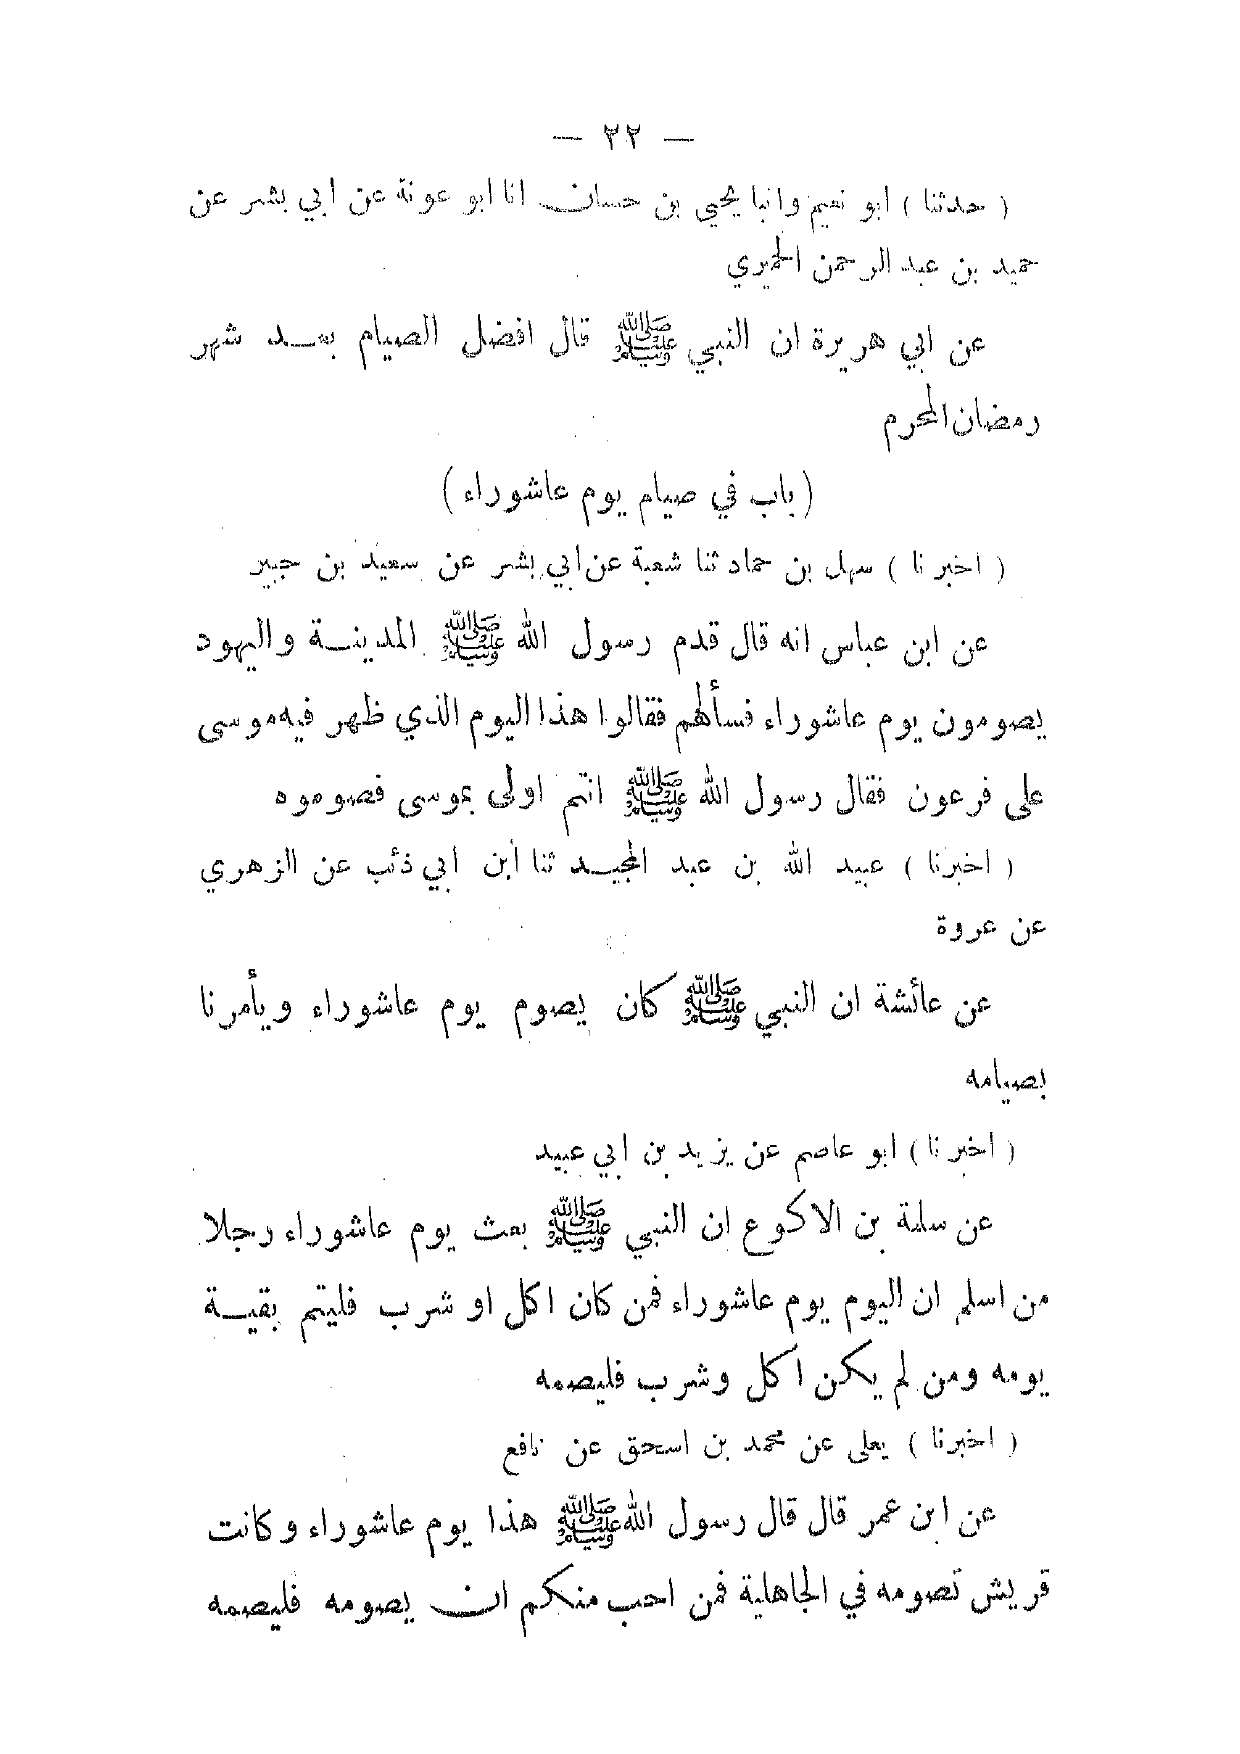 — ٢٢ —
( حدثنا ) ابو نعيم وانبا يحيي بن حسان انا ابو عونة عن ابي بشر عن
حميد بن عبد الرحمن الحميري
عن ابي هريرة ان النبي ﷺ قال افضل الصيام بعد شهر
رمضان المحرم
( باب في صيام يوم عاشوراء )
( اخبرنا ) سهل بن حماد ثنا شعبة عن ابي بشر عن سعيد بن جبير
عن ابن عباس انه قال قدم رسول الله ﷺ المدينة واليهود
يصومون يوم عاشوراء فسألهم فقالوا هذا اليوم الذي ظهر فيه موسى
على فرعون فقال رسول الله ﷺ انتم اولى بموسى فصوموه
( اخبرنا ) عبيد الله بن عبد المجيد ثنا أبن ابي ذئب عن الزهري
عن عروة
عن عائشة ان النبي ﷺ كان يصوم يوم عاشوراء ويأمرنا
بصيامه
( اخبرنا ) ابو عاصم عن يزيد بن ابي عبيد
عن سلمة بن الاكوع ان النبي ﷺ بعث يوم عاشوراء رجلا
من اسلم ان اليوم يوم عاشوراء فمن كان اكل او شرب فليتم بقية
يومه ومن لم يكن اكل وشرب فليصمه
( اخبرنا ) يعلى عن محمد بن اسحق عن نافع
عن ابن عمر قال قال رسول الله ﷺ هذا يوم عاشوراء وكانت
قريش تصومه في الجاهلية فمن احب منكم ان يصومه فليصمه